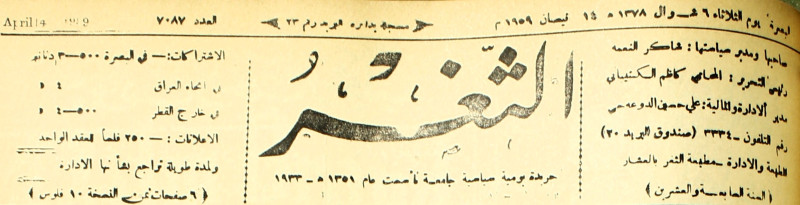 البصرة يوم الثلاثاء ٦ شـوال ١٣٧٨ ه ١٤ نيسان ١٩٥٩ م
مسجلة بدائرة البريد رقم ٢٣
العدد ٧٠٨٧
April 14
صاحبها ومدير سياستها : شاكر النعمه
رئيس التحرير : المحامي كاظم الكشيباني
مدير الادارة والمالية : علي حسين
رقم التلفون ـ ٣٣٣٤ (صندوق البريد ٢٠)
المطبعة والادارة ــ مطبعة الثغر بالعشار
( السنة السابعة والعشرين )
الثغر
جريدة يومية سياسية جامعة تأسست عام ١٣٥١ ه ـ ١٩٣٣
الاشتراكات : ــ في البصرة ٥٠٠ــ٣ دنانير
في انحاء العراق ٤ »
في خارج القطر ٥٠٠ــ٤ »
الاعلانات : ــ ٢٥٠ فلساً للعقد الواحد
ولمدة طويلة تراجع بشأنها الادارة
( ٦ صفحات ثمن النسخة ١٠ فلوس )